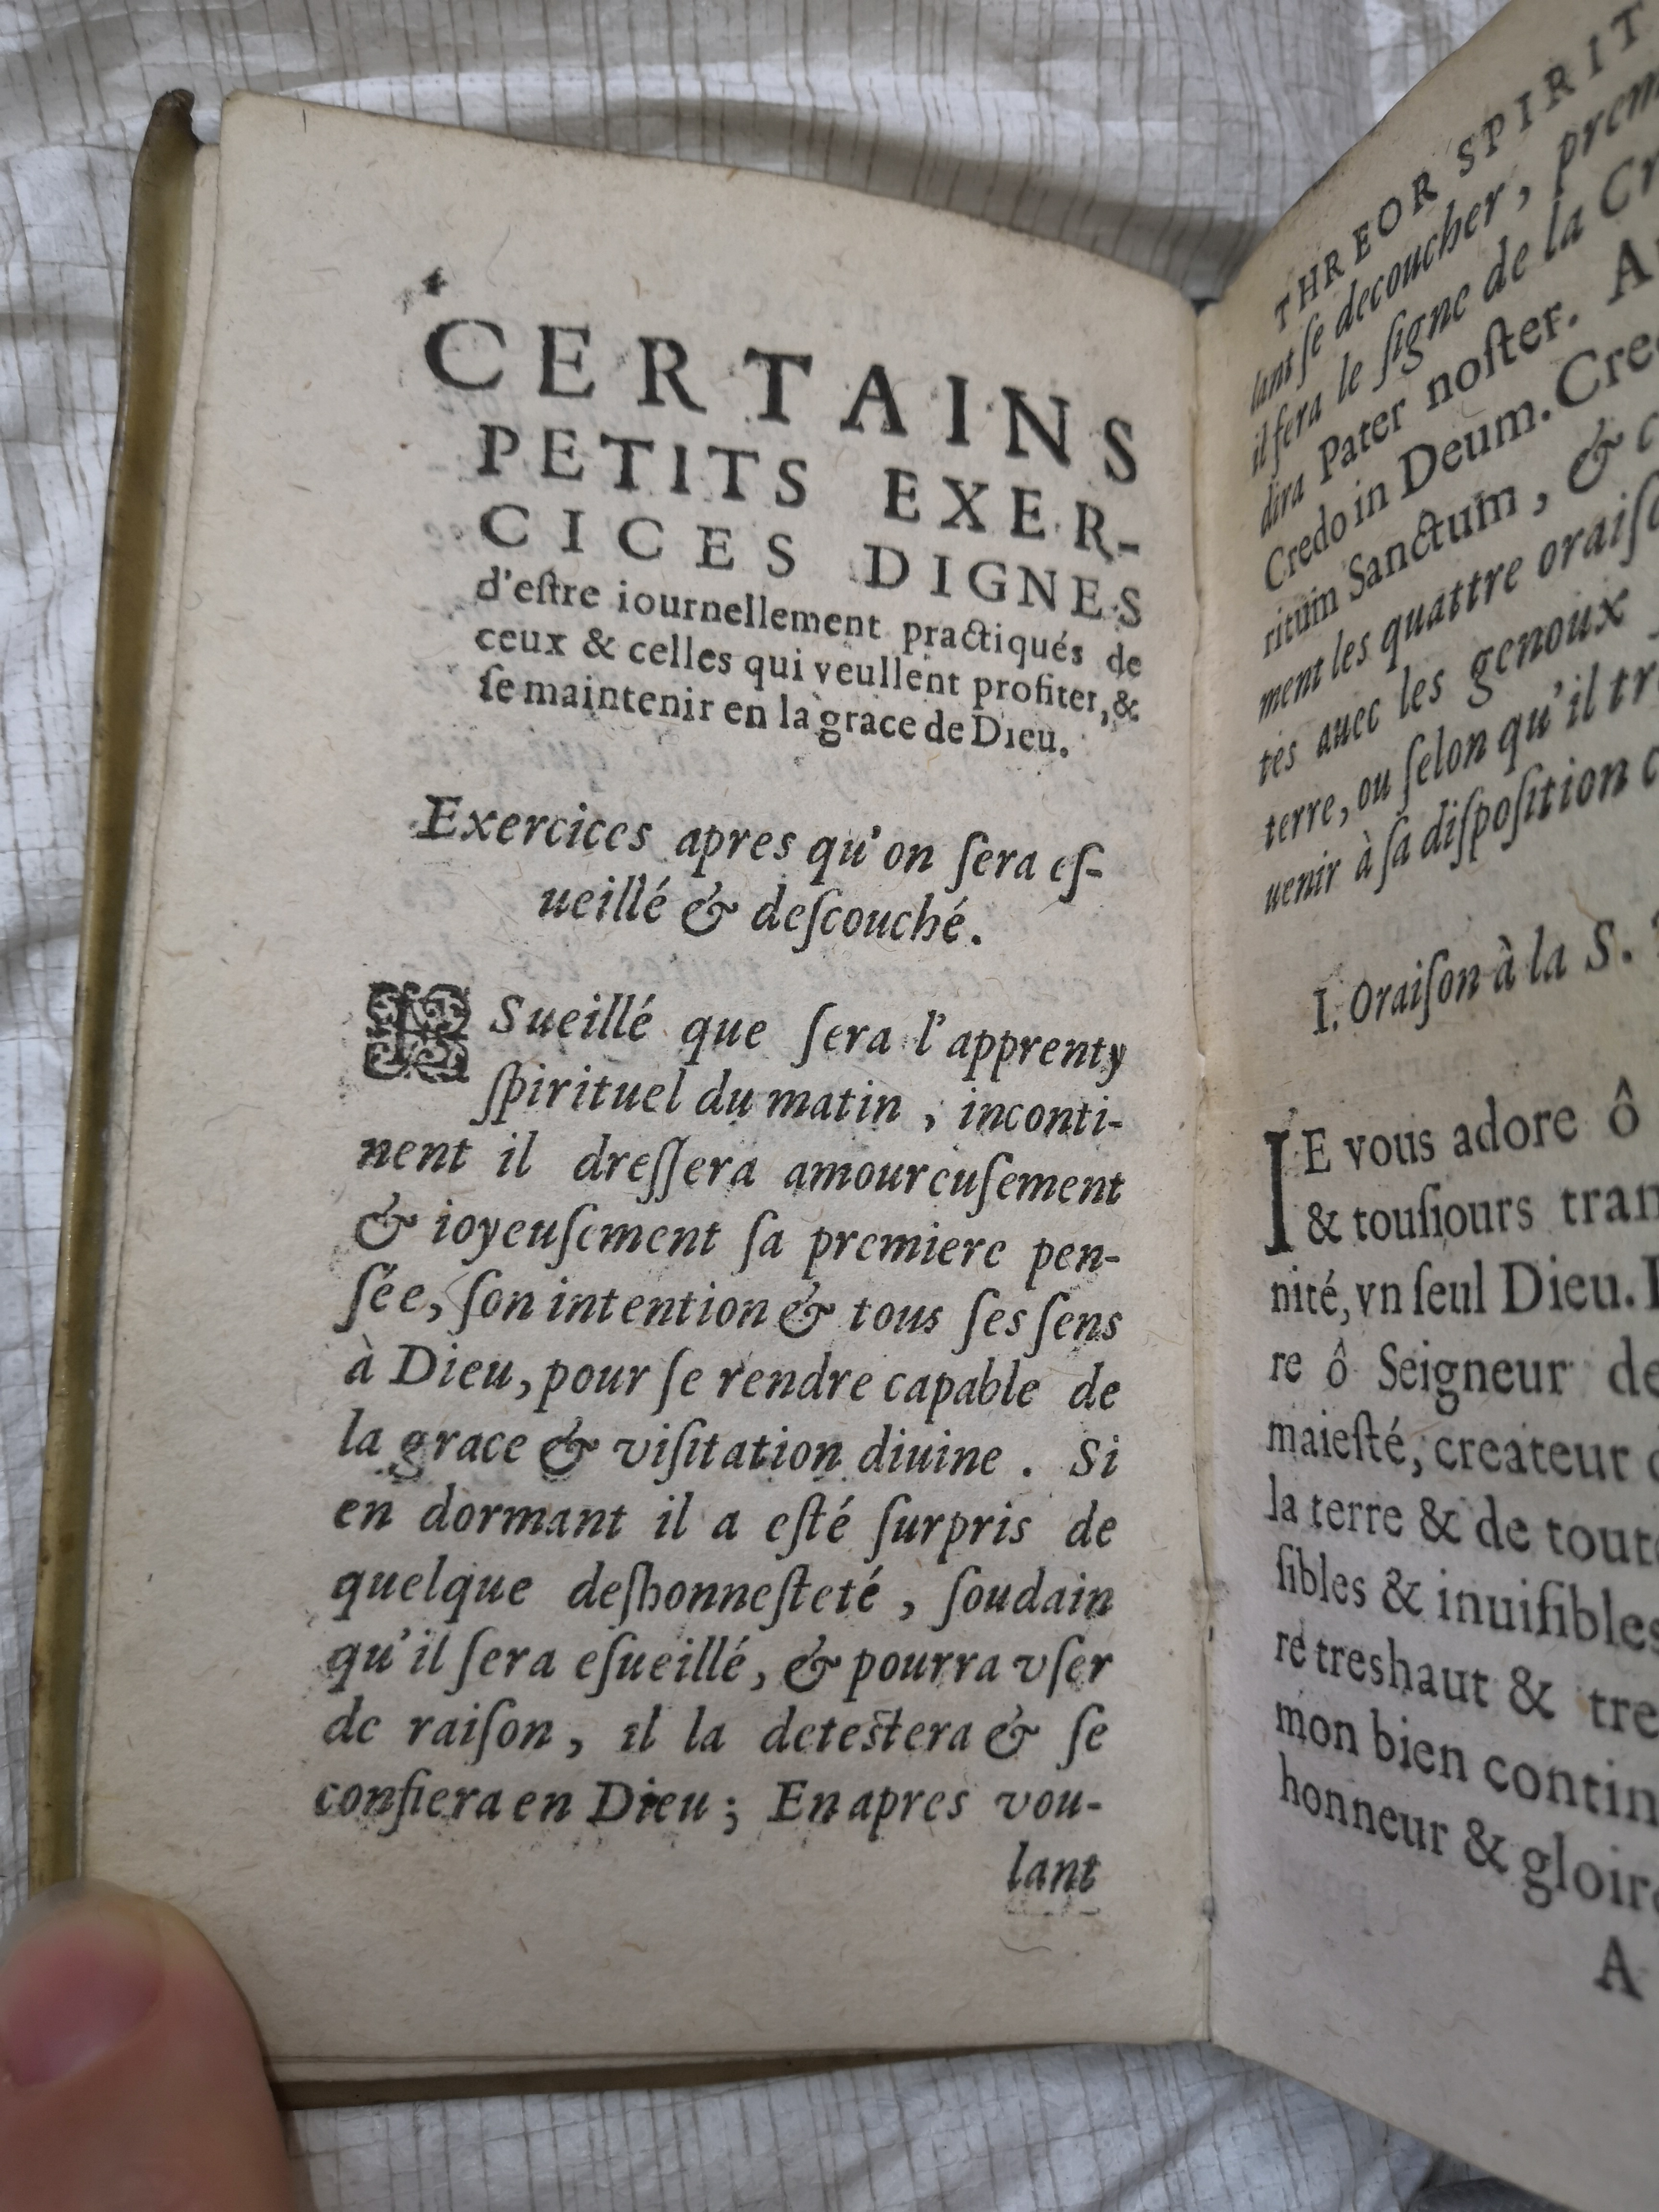 CERTAINS
PETITS EXER-
CICES DIGNES
d'eſtre iournellement practiqués de
ceux & celles qui veullent profiter, &
ſe maintenir en la grace de Dieu.
Exercices apres qu'on ſera eſ-
ueillé & deſcouché.
ESueillé que ſera l'apprenty
ſpirituel du matin, inconti-
nent il dreſſera amoureuſement
& ioyeuſement ſa premiere pen-
ſée, ſon intention & tous ſes ſens
à Dieu, pour ſe rendre capable de
la grace & viſitation diuine. Si
en dormant il a eſté ſurpris de
quelque deſhonneſteté, ſoudain
qu'il ſera eſueillé, & pourra vſer
de raiſon, il la deteſtera & ſe
confiera en Dieu; En apres vou-
lant
THREOR SPIRIT
lant ſe decoucher, prem
il fera le ſigne de la Cr
dira Pater noſter. A
Credo in Deum. Cre
ritum Sanctum, & c
ment les quattre oraiſo
tes auec les genoux
terre, ou ſelon qu'il tr
uenir à ſa diſpoſition c
I. Oraiſon à la S.
IE vous adore ô
& touſiours tran
nité, vn ſeul Dieu. I
re ô Seigneur de
maieſté, createur
la terre & de tout
ſibles & inuiſibles
re treshaut & tre
mon bien contin
honneur & gloire
A